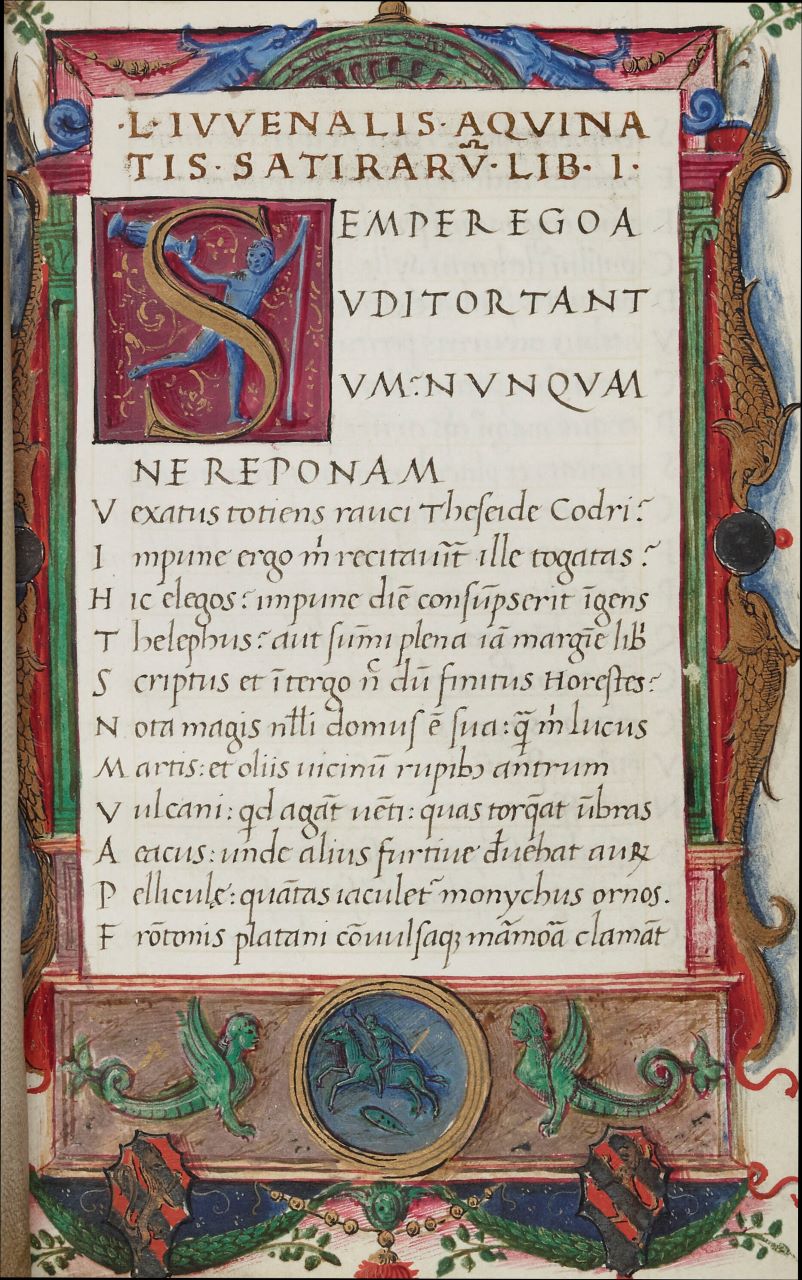 ·L·IVVENALIS·AQVINA
TIS·SATIRARV̄·LIB·I·
SEMPER EGO A
VDITOR TANT
VM: NVNQVAM
NE REPONAM
Vexatus totiens rauci Theseide Codri?
Impune ergo m̍ recitauit̄ ille togatas?
Hic elegos? impune diē consūpserit īgens
Thelephus? aut sum̄i plena iā margīe lib̄
Scriptus et ī tergo n̄c dū finitus Horestes?
Nota magis nl̄li domus ē sua: q̄ m̍ lucus
Martis: et oliis uicinū rupibꝫ antrum
Vulcani: qd agāt uēti: quas torq̄at ūbras
Aeacus: unde alius furtiue d̄uehat auꝝ
Pelliculę: quātas iaculet᷑ monychus ornos.
Frōtonis platani cōuulsaqꝫ māmoā clamāt